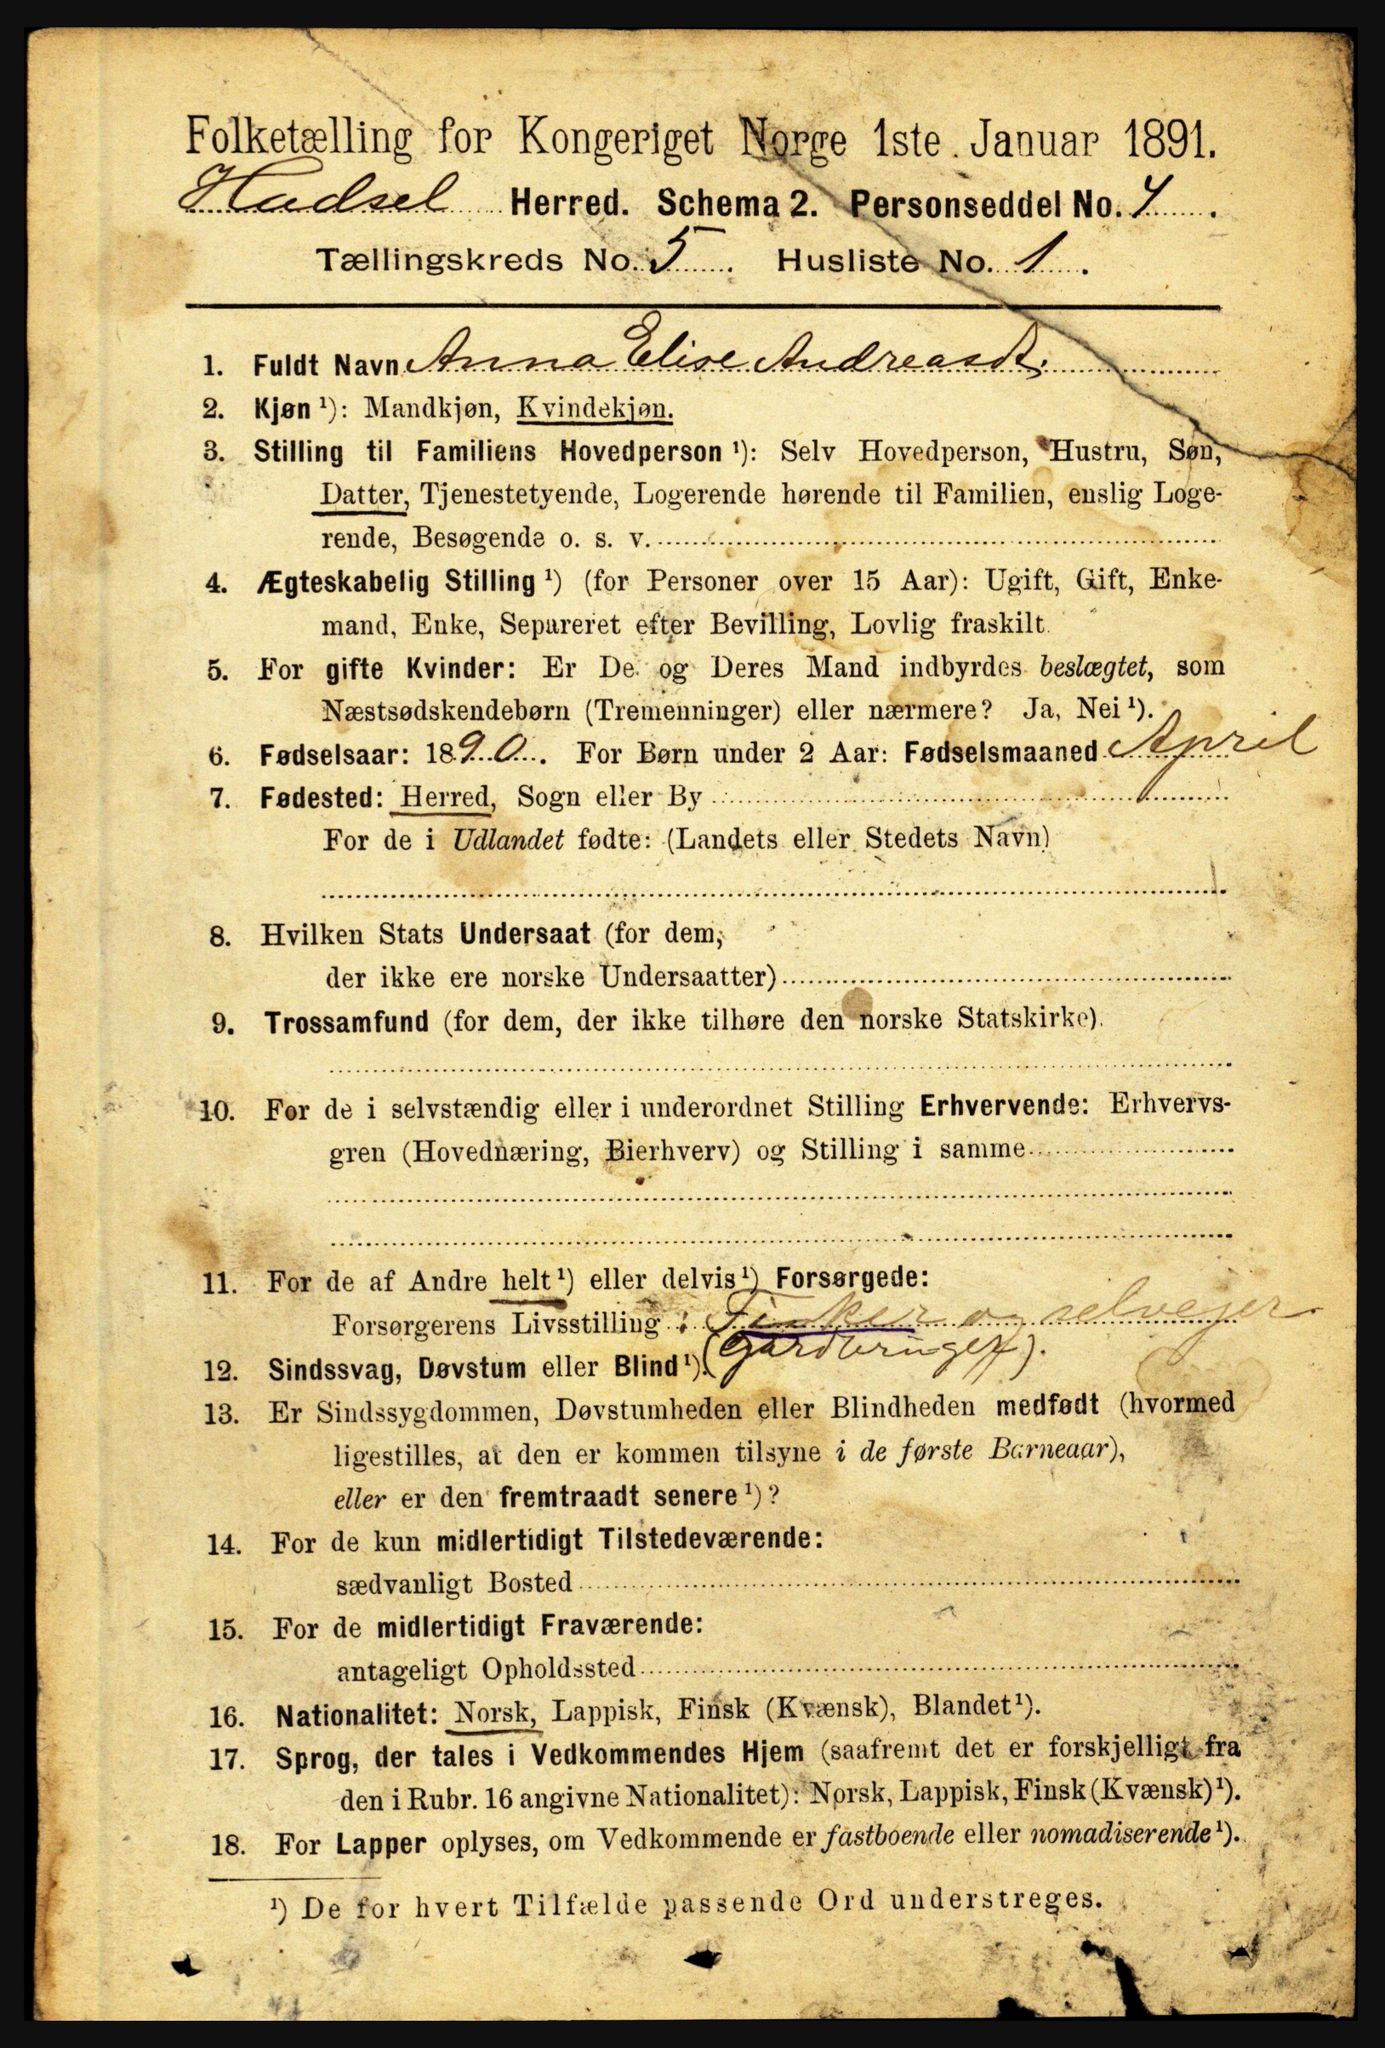 Folketælling for Kongeriget Norge 1ste Januar 1891.
Hadsel Herred. Schema 2. Personseddel No. 4.
Tællingskreds No. 5. Husliste No. 1.
1. Fuldt Navn Anna Elise Andreasdt.
2. Kjøn ¹): Mandkjøn, Kvindekjøn.
3. Stilling til Familiens Hovedperson ¹): Selv Hovedperson, Hustru, Søn,
Datter, Tjenestetyende, Logerende hørende til Familien, enslig Loge-
rende, Besøgende o. s. v.
4. Ægteskabelig Stilling ¹) (for Personer over 15 Aar): Ugift, Gift, Enke-
mand, Enke, Separeret efter Bevilling, Lovlig fraskilt.
5. For gifte Kvinder: Er De og Deres Mand indbyrdes beslægtet, som
Næstsødskendebørn (Tremenninger) eller nærmere? Ja, Nei ¹).
6. Fødselsaar: 1890. For Børn under 2 Aar: Fødselsmaaned April
7. Fødested: Herred, Sogn eller By
For de i Udlandet fødte: (Landets eller Stedets Navn)
8. Hvilken Stats Undersaat (for dem,
der ikke ere norske Undersaatter)
9. Trossamfund (for dem, der ikke tilhøre den norske Statskirke).
10. For de i selvstændig eller i underordnet Stilling Erhvervende: Erhvervs-
gren (Hovednæring, Bierhverv) og Stilling i samme
11. For de af Andre helt ¹) eller delvis ¹) Forsørgede:
Forsørgerens Livsstilling: Fisker og selveyer
12. Sindssvag, Døvstum eller Blind ¹). (Gårdbruger).
13. Er Sindssygdommen, Døvstumheden eller Blindheden medfødt (hvormed
ligestilles, at den er kommen tilsyne i de første Barneaar),
eller er den fremtraadt senere ¹)?
14. For de kun midlertidigt Tilstedeværende:
sædvanligt Bosted
15. For de midlertidigt Fraværende:
antageligt Opholdssted
16. Nationalitet: Norsk, Lappisk, Finsk (Kvænsk), Blandet ¹).
17. Sprog, der tales i Vedkommendes Hjem (saafremt det er forskjelligt fra
den i Rubr. 16 angivne Nationalitet): Norsk, Lappisk, Finsk (Kvænsk) ¹).
18. For Lapper oplyses, om Vedkommende er fastboende eller nomadiserende ¹).
¹) De for hvert Tilfælde passende Ord understreges.